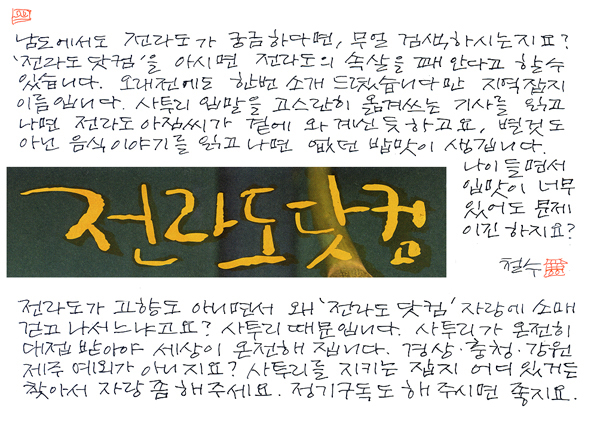 남도에서도 전라도가 궁금하다면, 무얼 검색하시는지요?
'전라도 닷컴'을 아시면 전라도의 속살을 꽤 안다고 할 수
있습니다. 오래전에도 한번 소개 드렸습니다만 지역잡지
이름입니다. 사투리 입말을 고스란히 옮겨쓰는 기사를 읽고
나면 전라도 아짐씨가 곁에 와 계신 듯 하고요, 별것도
아닌 음식이야기를 읽고 나면 없던 밥맛이 생깁니다.
나이 들면서
입맛이 너무
있어도 문제
이긴 하지요?
전라도닷컴
철수
전라도가 고향도 아니면서 왜 '전라도 닷컴' 자랑에 소매
걷고 나서느냐고요? 사투리 때문입니다. 사투리가 온전히
대접 받아야 세상이 온전해 집니다. 경상·충청·강원
제주 예외가 아니지요? 사투리를 지키는 잡지 어디 있거든
찾아서 자랑 좀 해주세요. 정기구독도 해 주시면 좋지요.